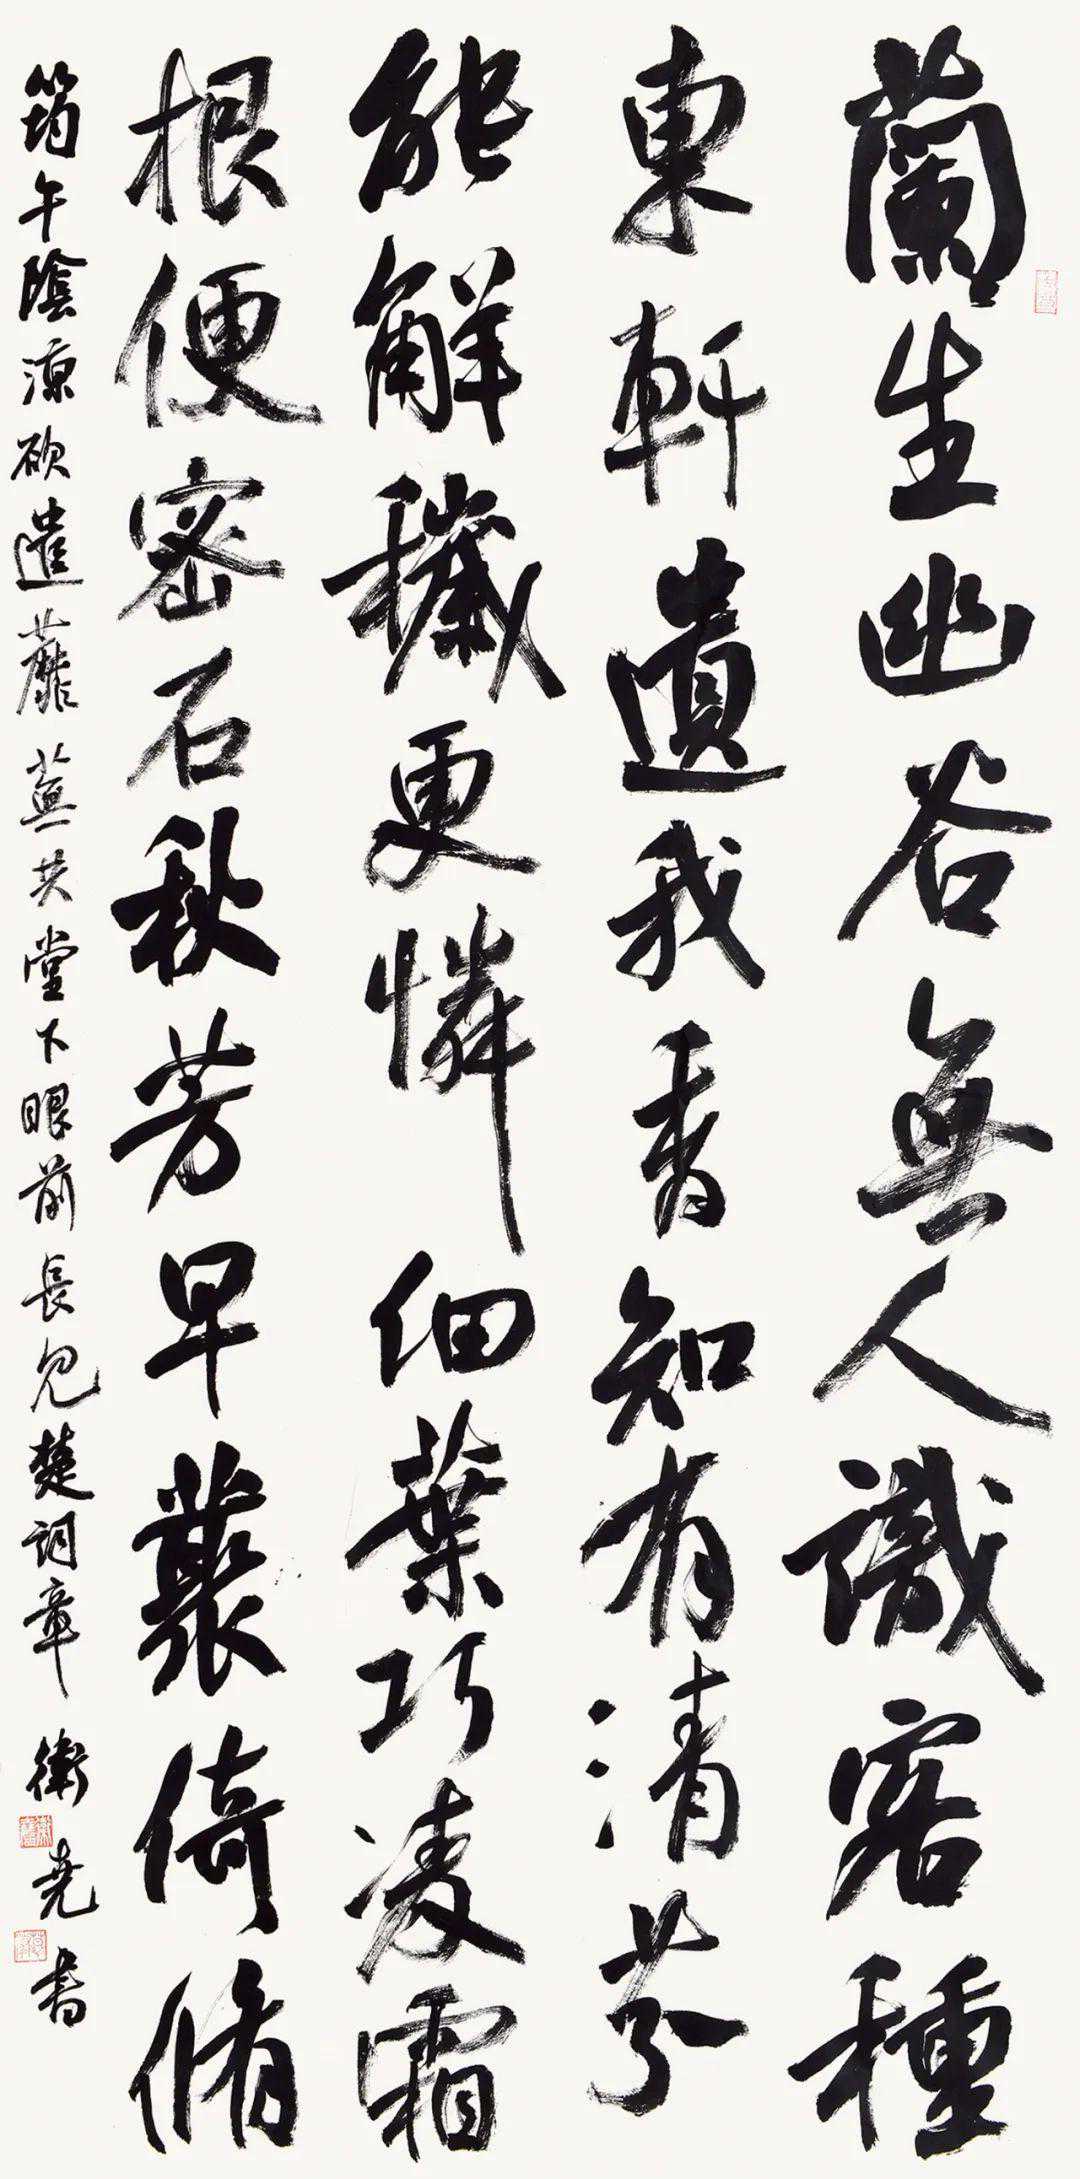 蘭生幽谷無人識客種
東軒遺我香知有清芬
能解穢更憐細葉巧凌霜
根便密石秋芳早藂倚脩
筠午陰涼欲遣蘼蕪共堂下眼前長見楚詞章 衛堯書